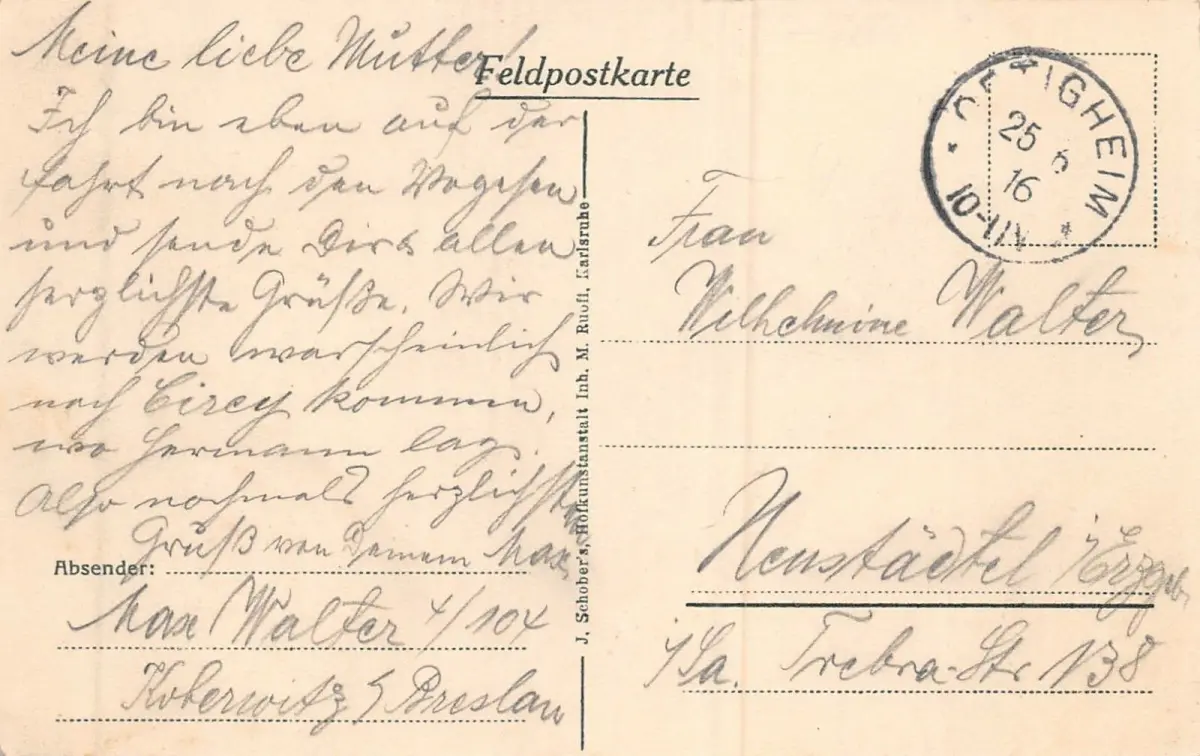 Feldpostkarte
Meine liebe Mutter!
Ich bin eben auf der
Fahrt nach den Vogesen
und sende Dir die allen
herzlichste Grüße. Wir
werden warscheinlich
nach Cirey kommen,
wo Hermann lag.
Also nochmals herzlichsten
Gruß von Deinem Max
Absender:
Max Walter 4/104
Koberwitz b/ Breslau
J. Schober's, Hofkunstanstalt Inh. M. Ruoff, Karlsruhe
OETIGHEIM
25 6
16
10-11V
Frau
Wilhelmine Walter
Neustädtel i/Erzgeb.
i/Sa. Trebra-Str 13 8